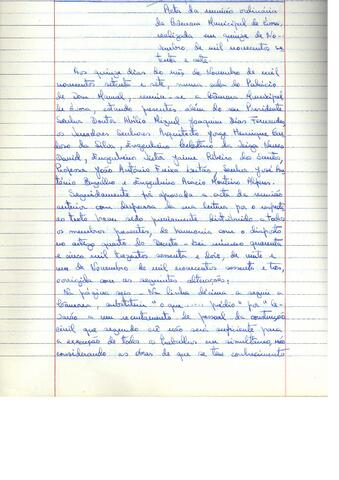 Acta da reunião ordinária
da Câmara Municipal de Évora,
realizada em quinze de No-
vembro de mil novecentos se-
tenta e sete.
Aos quinze dias do mês de Novembro de mil
novecentos setenta e sete, numa sala do Palácio
de Dom Manuel, reuniu-se a Câmara Municipal
de Évora, estando presentes além do seu Presidente
Senhor Doutor Abílio Miguel Joaquim Dias Fernandes,
os Vereadores Senhores Arquitecto Jorge Henrique
da Silva, Engenheiro Celestino
David, Engenheiro Victor Jaime Ribeiro dos Santos,
Professor João António Freixo Leitão, Senhor José An-
tónio e Engenheiro Acácio Monteiro
Seguidamente foi aprovada a acta da reunião
anterior com dispensa da sua leitura por o respecti-
vo texto haver sido previamente distribuído a todos
os membros presentes, de harmonia com o disposto
no artigo quarto do Decreto-Lei número quarenta
e cinco mil trezentos sessenta e dois, de vinte e
um de Novembro de mil novecentos sessenta e três,
corrigida com as seguintes
Na página seis. Na linha décima a seguir a
Câmara, substituir "o que ..... prédio" por "
a um recrutamento de pessoal da construção
civil que segundo crê não será suficiente para
a execução de todos os trabalhos em simultâneo, não
considerando as obras de que se tem conhecimento